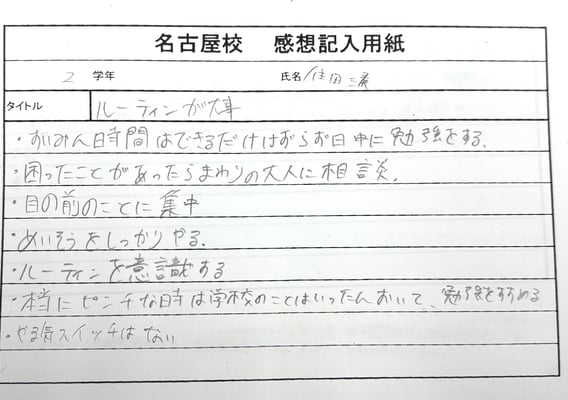 名古屋校 感想記入用紙
2 学年 氏名 住田
タイトル ルーティンが大事
・すいみん時間はできるだけけずらず日中に勉強をする.
・困ったことがあったらまわりの大人に相談.
・目の前のことに集中
・めいそうをしっかりやる.
・ルーティンを意識する
・本当にピンチな時は学校のことはいったんおいて、勉強をすすめる
・やる気スイッチはない